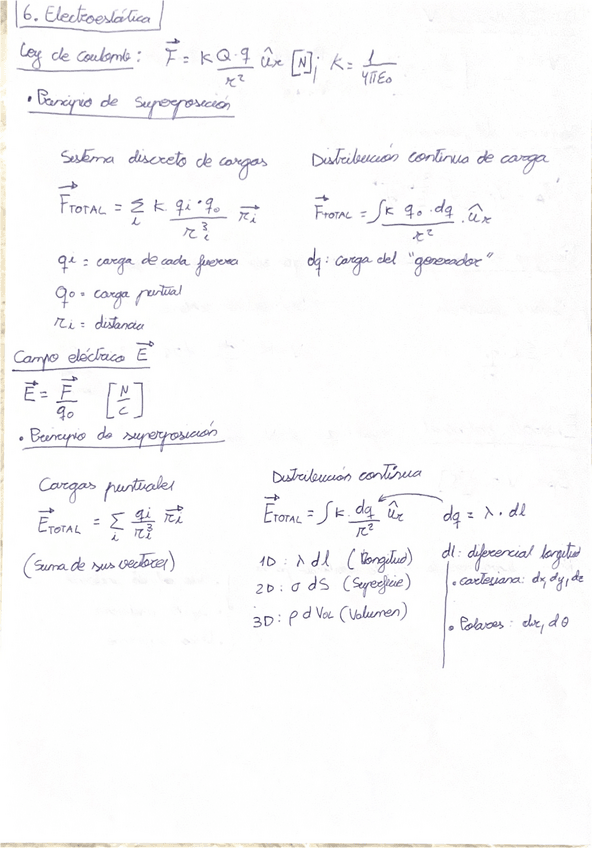 6. Electroestática
Ley de Coulomb: F⃗ = K Q·q / r² û_r [N]; K = 1 / 4πε₀
• Principio de superposición
Sistema discreto de cargas
F⃗_TOTAL = Σ_i K q_i · q_0 / r_i³ r⃗_i
q_i = carga de cada fuerza
q_0 = carga puntual
r_i = distancia
Distribución continua de carga
F⃗_TOTAL = ∫ K q_0 · dq / r² · û_r
dq: carga del "generador"
Campo eléctrico E⃗
E⃗ = F⃗ / q_0 [N/C]
• Principio de superposición
Cargas puntuales
E⃗_TOTAL = Σ_i q_i / r_i³ r⃗_i
(Suma de sus vectores)
Distribución contínua
E⃗_TOTAL = ∫ K · dq / r² û_r
dq = λ · dl
1D: λ dl (Longitud)
2D: σ dS (Superficie)
3D: ρ d VOL (Volumen)
dl: diferencial longitud
• cartesiana: dx, dy, dz
• Polares: dr, dθ